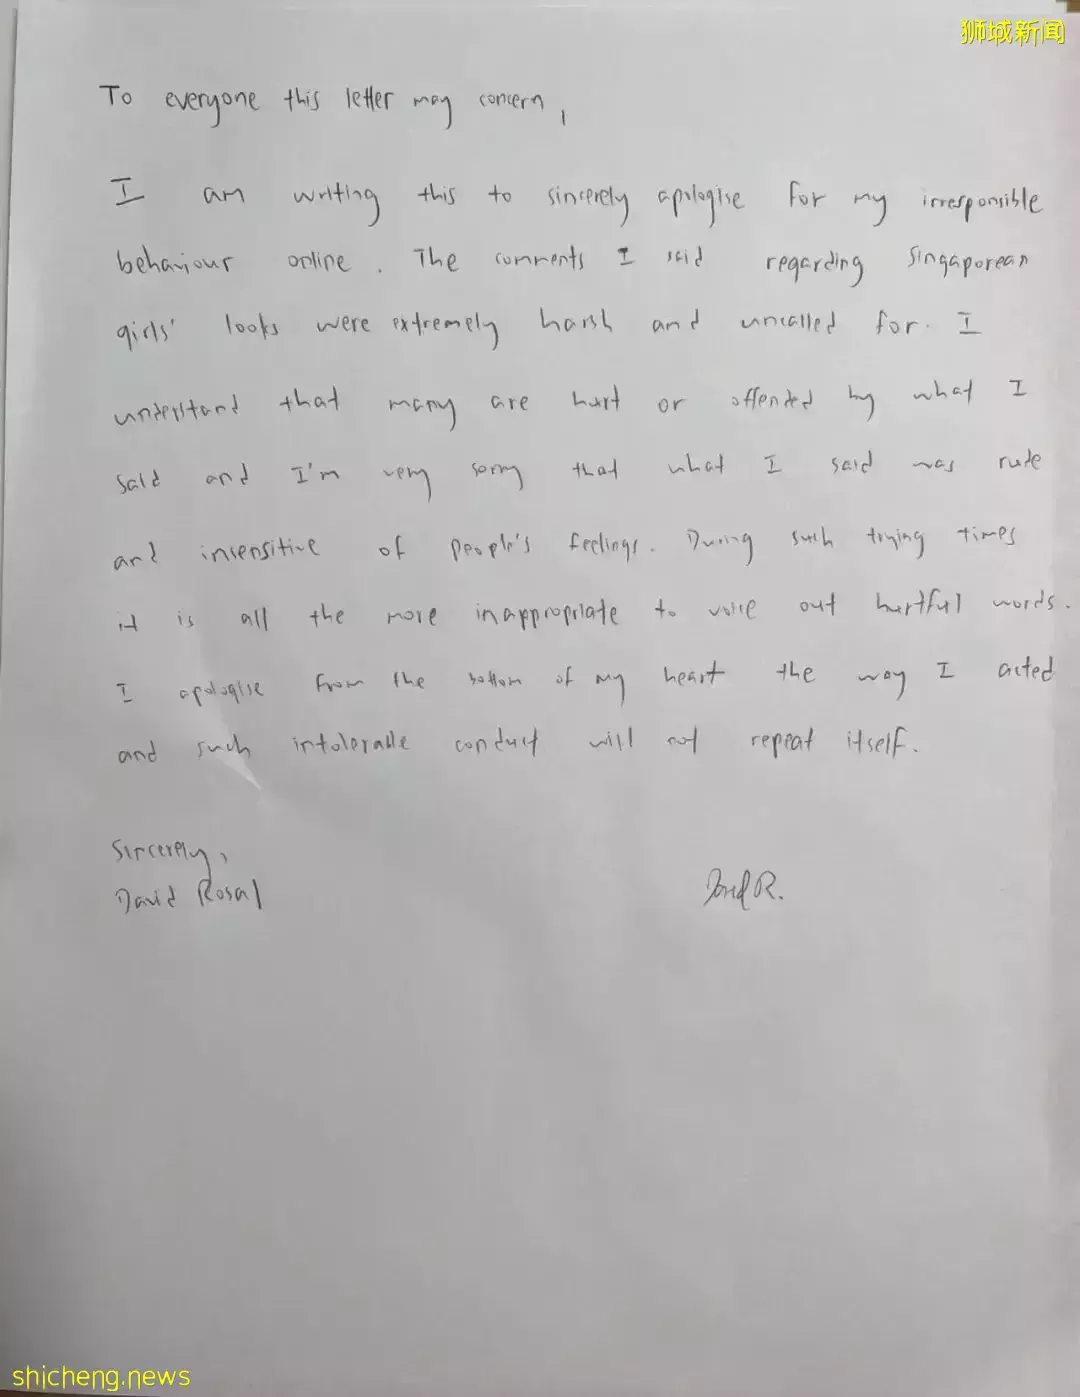 狮城新闻
To everyone this letter may concern,
I am writing this to sincerely apologise for my irresponsible
behaviour online. The comments I said regarding Singaporean
girls' looks were extremely harsh and uncalled for. I
understand that many are hurt or offended by what I
said and I'm very sorry that what I said was rude
and insensitive of people's feelings. During such trying times
it is all the more inappropriate to voice out hurtful words.
I apologise from the bottom of my heart the way I acted
and such intolerable conduct will not repeat itself.
Sincerely,
David Rosal
David R.
shicheng.news